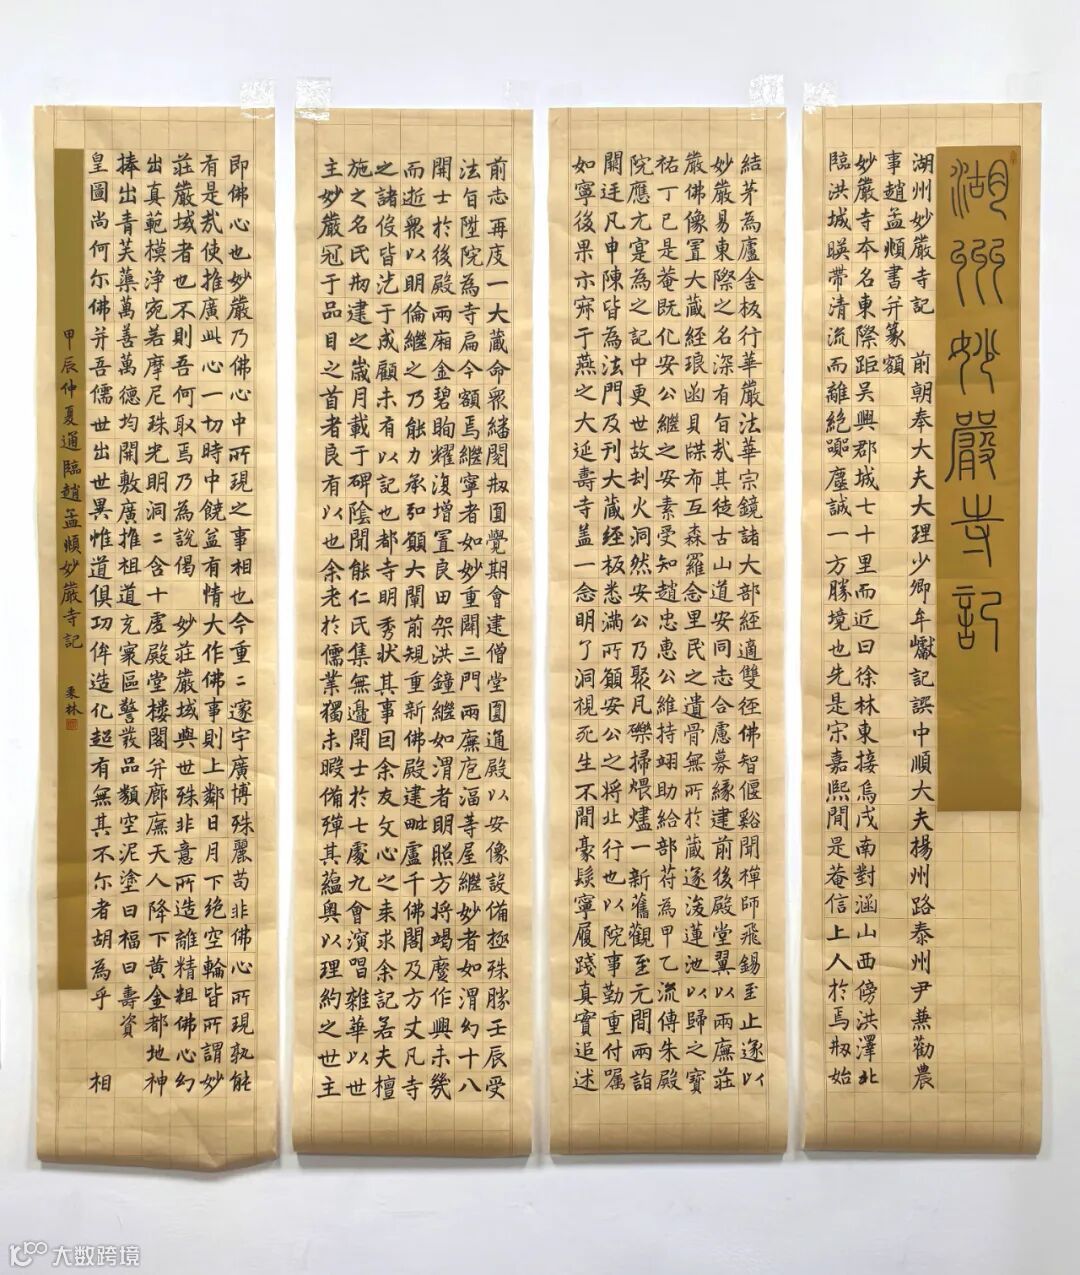 湖州妙嚴寺記
湖州妙嚴寺記 前朝奉大夫大理少卿牟巘記譔中順大夫揚州路泰州尹兼勸農
事趙孟頫書并篆額
妙嚴寺本名東際距吳興郡城七十里而近曰徐林東接烏戌南對涵山西傍洪澤北
臨洪城暎帶清流而離絕囂塵誠一方勝境也先是宋嘉熙間是菴信上人於焉刱始
結茅為廬舍板行華嚴法華宗鏡諸大部經適雙徑佛智偃谿聞禪師飛錫至止遂以
妙嚴易東際之名深有旨哉其徒古山道安同志合慮募緣建前後殿堂翼以兩廡莊
嚴佛像置大藏經琅函貝牒布互森羅念里民之遺骨無所於藏遂浚蓮池以歸之寶
祐丁巳是菴既化安公繼之安素受知趙忠惠公維持翊助給部符為甲乙流傳朱殿
院應元寔為之記中更世故刦火洞然安公乃聚凡礫掃煨燼一新舊觀至元間兩詣
闕廷凡申陳皆為法門及刊大藏經板悉滿所願安公之將北行也以院事勤重付囑
如寧後果示寂于燕之大延壽寺蓋一念明了洞視死生不間豪髮寧履踐真實追述
前志再度一大藏命眾繙閱刱圓覺期會建僧堂圓通殿以安像設備極殊勝壬辰受
法旨陞院為寺扁今額焉繼寧者如妙重闢三門兩廡庖湢等屋繼妙者如渭幻十八
開士於後殿兩廂金碧眴耀復增置良田架洪鐘繼如渭者明照方將竭麼作興未幾
而逝眾以明倫繼之乃能力承弘願大闡前規重新佛殿建毗盧千佛閣及方丈凡寺
之諸役皆汔于成顧未有以記也都寺明秀狀其事因余友文心之來求余記若夫檀
施之名氏刱建之歲月載于碑陰聞能仁氏集無邊開士於七處九會演唱雜華以世
主妙嚴冠于品目之首者良有以也余老於儒業獨未暇備殫其蘊奧以理約之世主
即佛心也妙嚴乃佛心中所現之事相也今重二邃宇廣博殊麗苟非佛心所現孰能
有是哉使推廣此心一切時中饒益有情大作佛事則上鄰日月下絕空輪皆所謂妙
莊嚴域者也不則吾何取焉乃為說偈 妙莊嚴域與世殊非意所造離精粗佛心幻
出真範模淨宛若摩尼珠光明洞二含十虛殿堂樓閣并廊廡天人降下黃金都地神
捧出青芙蕖萬善萬德均開敷廣推祖道充寰區警發品類空泥塗曰福曰壽資
皇圖尚何尔佛并吾儒世出世異惟道俱功侔造化超有無其不尔者胡為乎 相
甲辰仲夏通臨趙孟頫妙嚴寺記 秉林
大数跨境